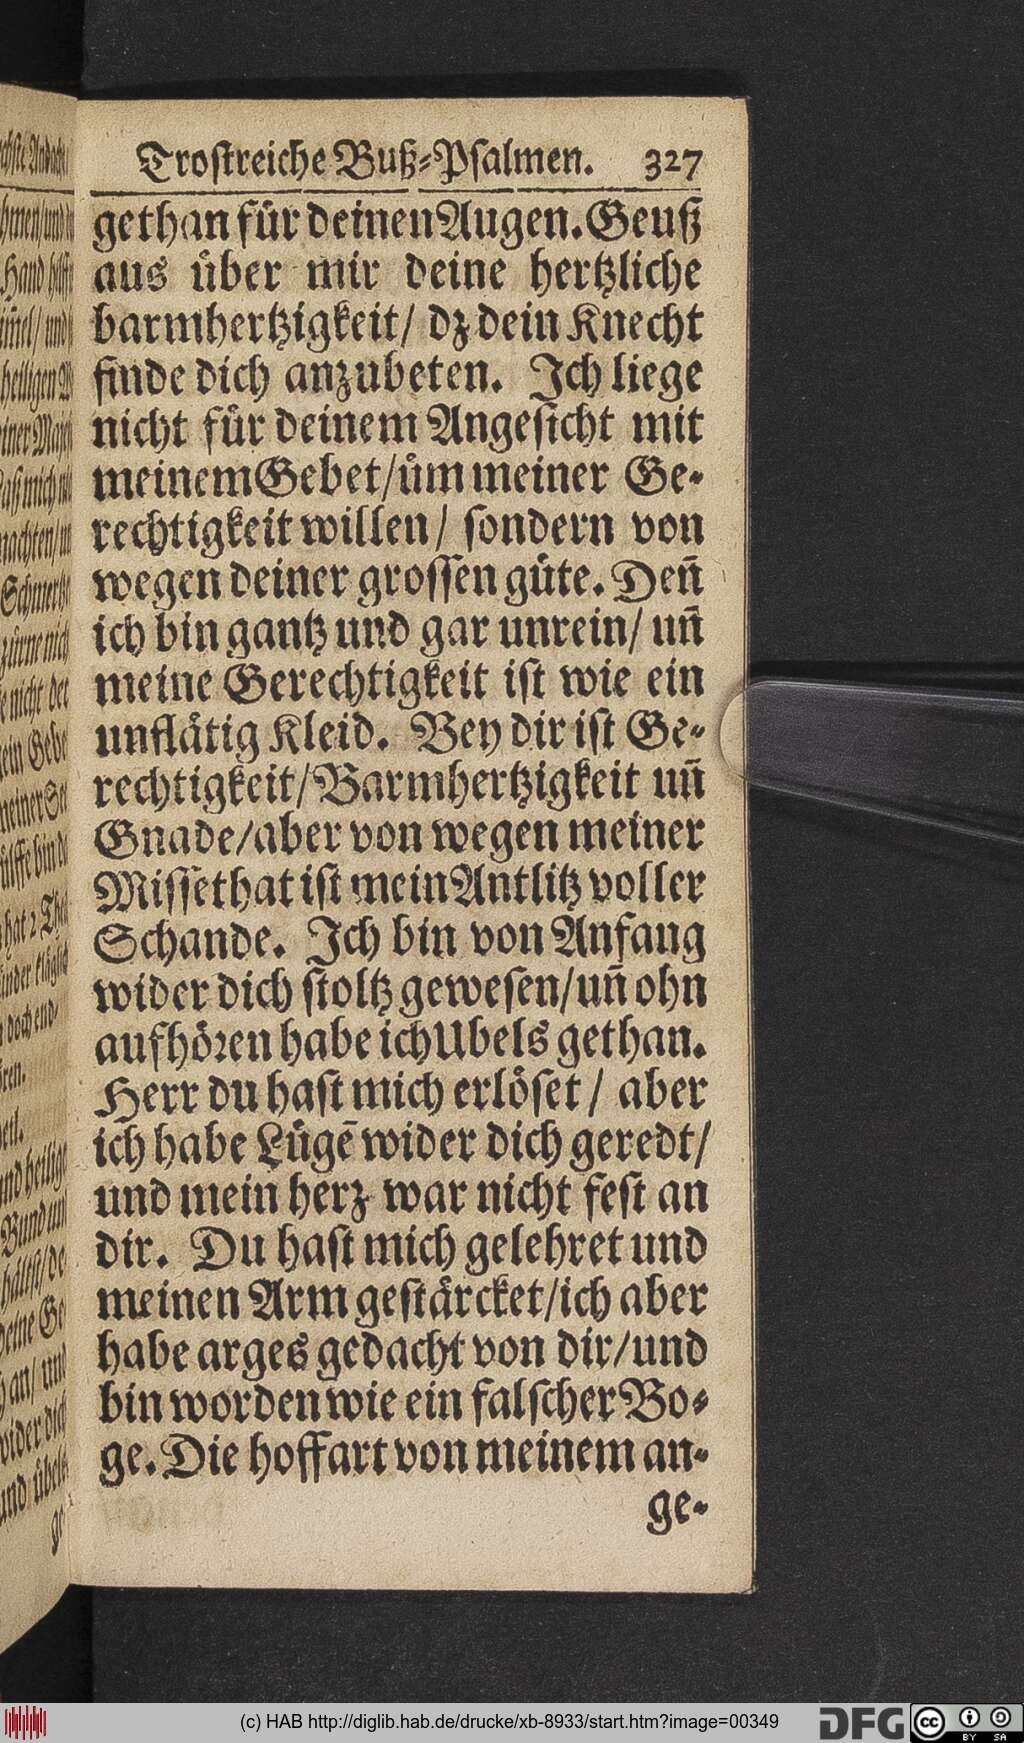 Trostreiche Buß-Psalmen. 327
gethan für deinen Augen. Geuß
aus über mir deine hertzliche
barmhertzigkeit/ dz dein Knecht
finde dich anzubeten. Ich liege
nicht für deinem Angesicht mit
meinem Gebet/üm meiner Ge-
rechtigkeit willen/ sondern von
wegen deiner grossen güte. Deñ
ich bin gantz und gar unrein/ uñ
meine Gerechtigkeit ist wie ein
unflätig Kleid. Bey dir ist Ge-
rechtigkeit/Barmhertzigkeit uñ
Gnade/aber von wegen meiner
Missethat ist mein Antlitz voller
Schande. Ich bin von Anfang
wider dich stoltz gewesen/uñ ohn
aufhören habe ich Ubels gethan.
Herr du hast mich erlöset/ aber
ich habe Lügẽ wider dich geredt/
und mein herz war nicht fest an
dir. Du hast mich gelehret und
meinen Arm gestärcket/ich aber
habe arges gedacht von dir/und
bin worden wie ein falscher Bo-
ge. Die hoffart von meinem an-
ge-
(c) HAB http://diglib.hab.de/drucke/xb-8933/start.htm?image=00349
DFG cc BY SA